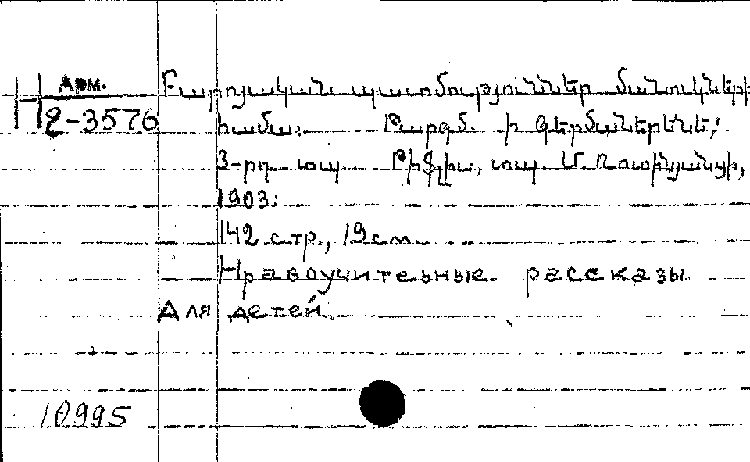 Арм.
2-3576
Բարոյական պատմութիւններ մանուկների
համար: Թարգմ. ի գերմաներենէ,
3-րդ տպ. Թիֆլիս, տպ. Մ. Ռոտինյանցի,
1903:
142 стр., 19 см.
Нравоучительные рассказы
для детей.
10995